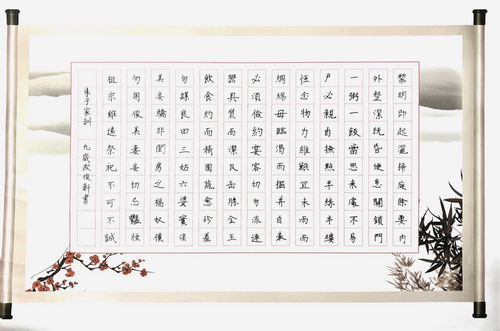 黎明即起灑掃庭除要內
外整潔既昏便息關鎖門
一粥一飯當思來處不易
戶必親自撿點半絲半縷
恆念物力維艱宜未雨而
綢繆毋臨渴而掘井自奉
必須儉約宴客切勿流連
器具質而潔瓦缶勝金玉
飲食約而精園蔬愈珍羞
勿謀良田三姑六婆實淫
美妾嬌非閨房之福奴僕
勿用俊美妻妾切忌豔妝
祖宗雖遠祭祀不可不誠
朱子家訓 九歲武俊軒書